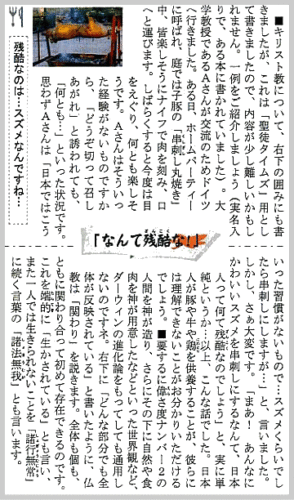 ■キリスト教について、右下の囲みにも書
きましたが、これは「聖徒タイムズ」用とし
て書きましたので、内容が少し難しいかもし
れません。一例をご紹介しましょう（実名入
りで、ある本に書かれていました）。大
学教授であるAさんが交流のためドイツ
へ行きました。ある日、ホームパーティー
に呼ばれ、庭では子豚の「串刺し丸焼き」
中、皆楽しそうにナイフで肉を刻み、口
へと運びます。しばらくすると今度は目
をえぐり、何とも楽しそ
うです。Aさんはそういっ
た経験がないものですか
ら、「どうぞ切って召し
あがれ」と誘われても、
「何とも…」といった状況です。
思わずAさんは「日本ではこう
残酷なのは…スズメなんですね…
「なんて残酷な！」
いった習慣がないもので…スズメくらいで
したら串刺しにしますが…」と、言いました。
しかし、さぁ大変です。「まあ！　あんなに
かわいいスズメを串刺しにするなんて、日本
人って何て残酷なのでしょう」と、実に単
純というか…以上、こんな話でした。日本
人が豚や牛や鶏を供養することが、彼らに
は理解できないことがお分かりいただける
でしょう。■要するに偉さ度ナンバー2の
人間を神が造り、さらにその下に自然や食
肉を神が用意したなどといった世界観など、
ダーウィンの進化論をもってしても通用し
ないのですネ。右下に「どんな部分でも全
体が反映されている」と書いたように、仏
教は「関わり」を説きます。全体も個も、
ともに関わり合って初めて存在できるのです。
これを端的に「生かされている」とも言い、
また一人では生きられないことを「諸行無常」
に続く言葉の「諸法無我」とも言います。